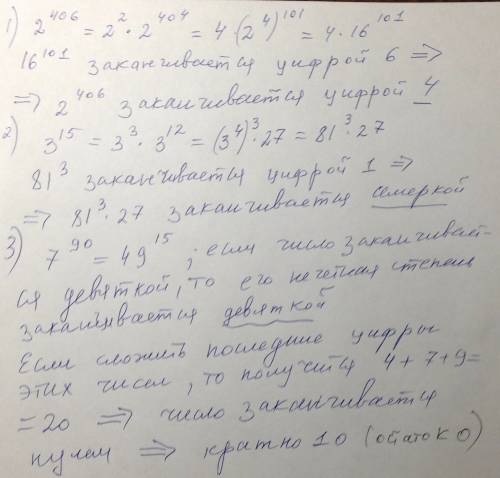 1) 2^406 = 2^2 · 2^404 = 4 · (2^4)^101 = 4 · 16^101
16^101 заканчивается цифрой 6 =>
=> 2^406 заканчивается цифрой 4
2) 3^15 = 3^3 · 3^12 = (3^4)^3 · 27 = 81^3 · 27
81^3 заканчивается цифрой 1 =>
=> 81^3 · 27 заканчивается семеркой
3) 7^90 = 49^15 ; если число заканчивает-
ся девяткой, то его нечетная степень
заканчивается девяткой
Если сложить последние цифры
этих чисел, то получится 4+7+9=
=20 => число заканчивается
нулем => кратно 10 (остаток 0)